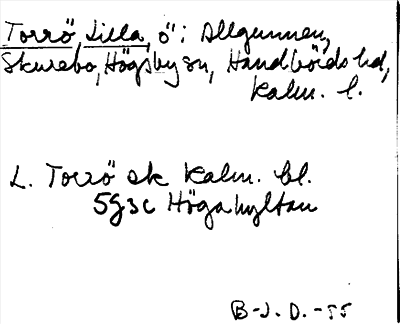 Torrö, Lilla, ö; Allgunnen,
Skurebo, Högsby sn, Handbörds hd,
Kalm. l.
L. Torrö ek Kalm. bl.
5G3c Högahyltan
B-J. D. -55